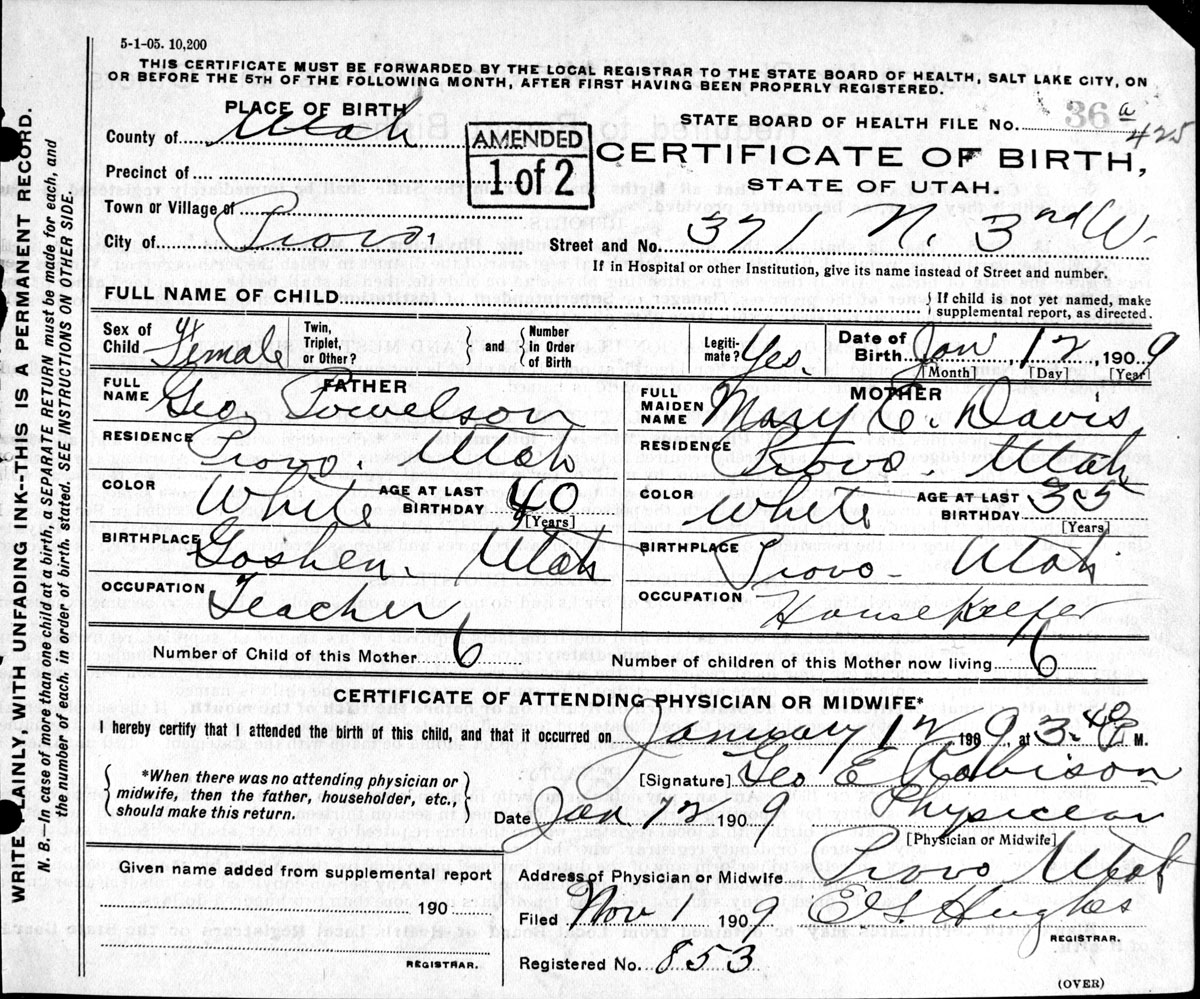 5-1-05. 10,200
THIS CERTIFICATE MUST BE FORWARDED BY THE LOCAL REGISTRAR TO THE STATE BOARD OF HEALTH, SALT LAKE CITY, ON
OR BEFORE THE 5TH OF THE FOLLOWING MONTH, AFTER FIRST HAVING BEEN PROPERLY REGISTERED.
WRITE PLAINLY, WITH UNFADING INK--THIS IS A PERMANENT RECORD.
N. B. In case of more than one child at a birth, a SEPARATE RETURN must be made for each, and
the number of each, in order of birth, stated. SEE INSTRUCTIONS ON OTHER SIDE.
PLACE OF BIRTH
County of Utah
Precinct of
Town or Village of
City of Provo.
AMENDED
1 of 2
STATE BOARD OF HEALTH FILE No. 36 a
425
CERTIFICATE OF BIRTH,
STATE OF UTAH.
Street and No. 371 N. 3rd W.
If in Hospital or other Institution, give its name instead of Street and number.
FULL NAME OF CHILD
If child is not yet named, make
supplemental report, as directed.
Sex of Child Female
Twin, Triplet, or Other?
and
Number In Order of Birth
Legiti-mate? Yes.
Date of Birth Jan, 12, 1909
[Month] [Day] [Year]
FATHER
FULL NAME Geo Powelson
RESIDENCE Provo. Utah
COLOR White AGE AT LAST BIRTHDAY 40
[Years]
BIRTHPLACE Goshen. Utah
OCCUPATION Teacher
MOTHER
FULL MAIDEN NAME Mary E. Davis
RESIDENCE Provo. Utah
COLOR White AGE AT LAST BIRTHDAY 35
[Years]
BIRTHPLACE Provo- Utah
OCCUPATION Housekeeper
Number of Child of this Mother 6 Number of children of this Mother now living 6
CERTIFICATE OF ATTENDING PHYSICIAN OR MIDWIFE*
I hereby certify that I attended the birth of this child, and that it occurred on January 12 1909, at 3.40 P. M.
*When there was no attending physician or
midwife, then the father, householder, etc.,
should make this return.
[Signature] Geo E Robison
Date Jan 12 1909 Physician
[Physician or Midwife]
Given name added from supplemental report
190
REGISTRAR.
Address of Physician or Midwife Provo Utah
Filed Nov 1 1909 E. S. Hughes
REGISTRAR.
Registered No. 853
(OVER)